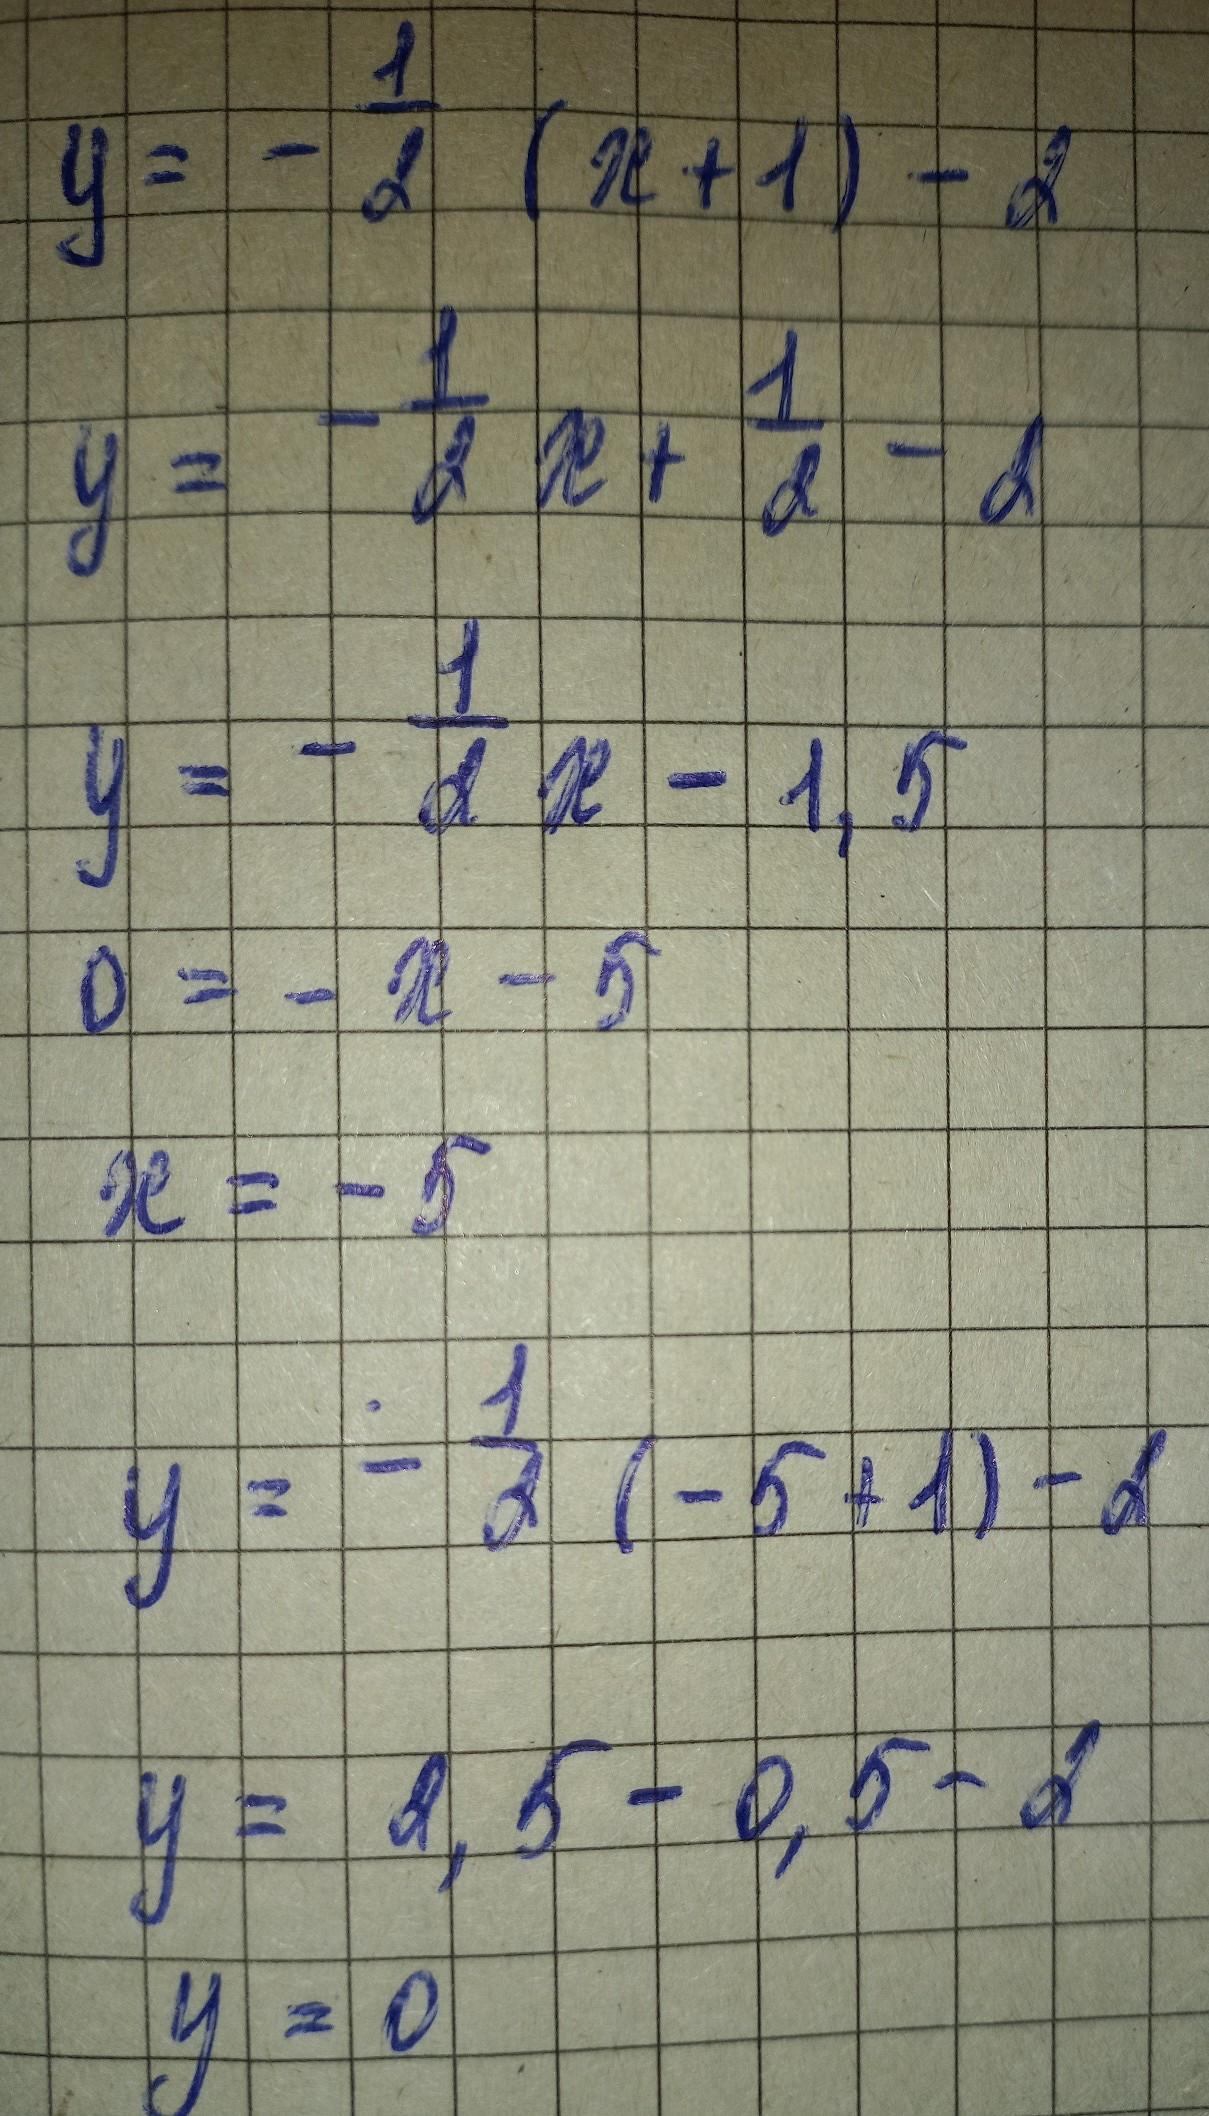 y = - 1/2 (x + 1) - 2
y = - 1/2 x + 1/2 - 2
y = - 1/2 x - 1,5
0 = - x - 5
x = - 5
y = - 1/2 (- 5 + 1) - 2
y = 2,5 - 0,5 - 2
y = 0